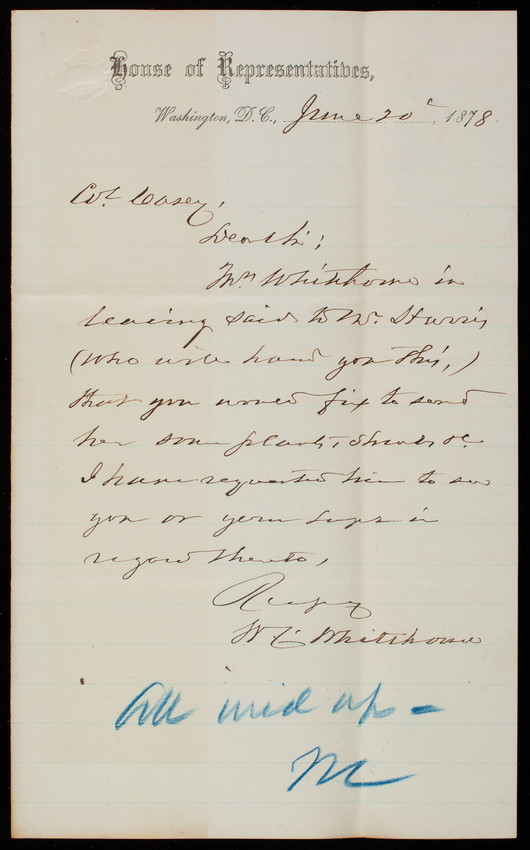 House of Representatives,
Washington, D.C., June 20", 1878.
Col. Casey,
Dear Sir;
Mrs Whitthorne in
leaving said to Mr. Harris
(who will hand you this,)
that you would fix to send
her some plants, shrubs &c.
I have requested him to see
you or your Supt in
regard thereto,
Respy
W C Whitthorne
All mixed up =